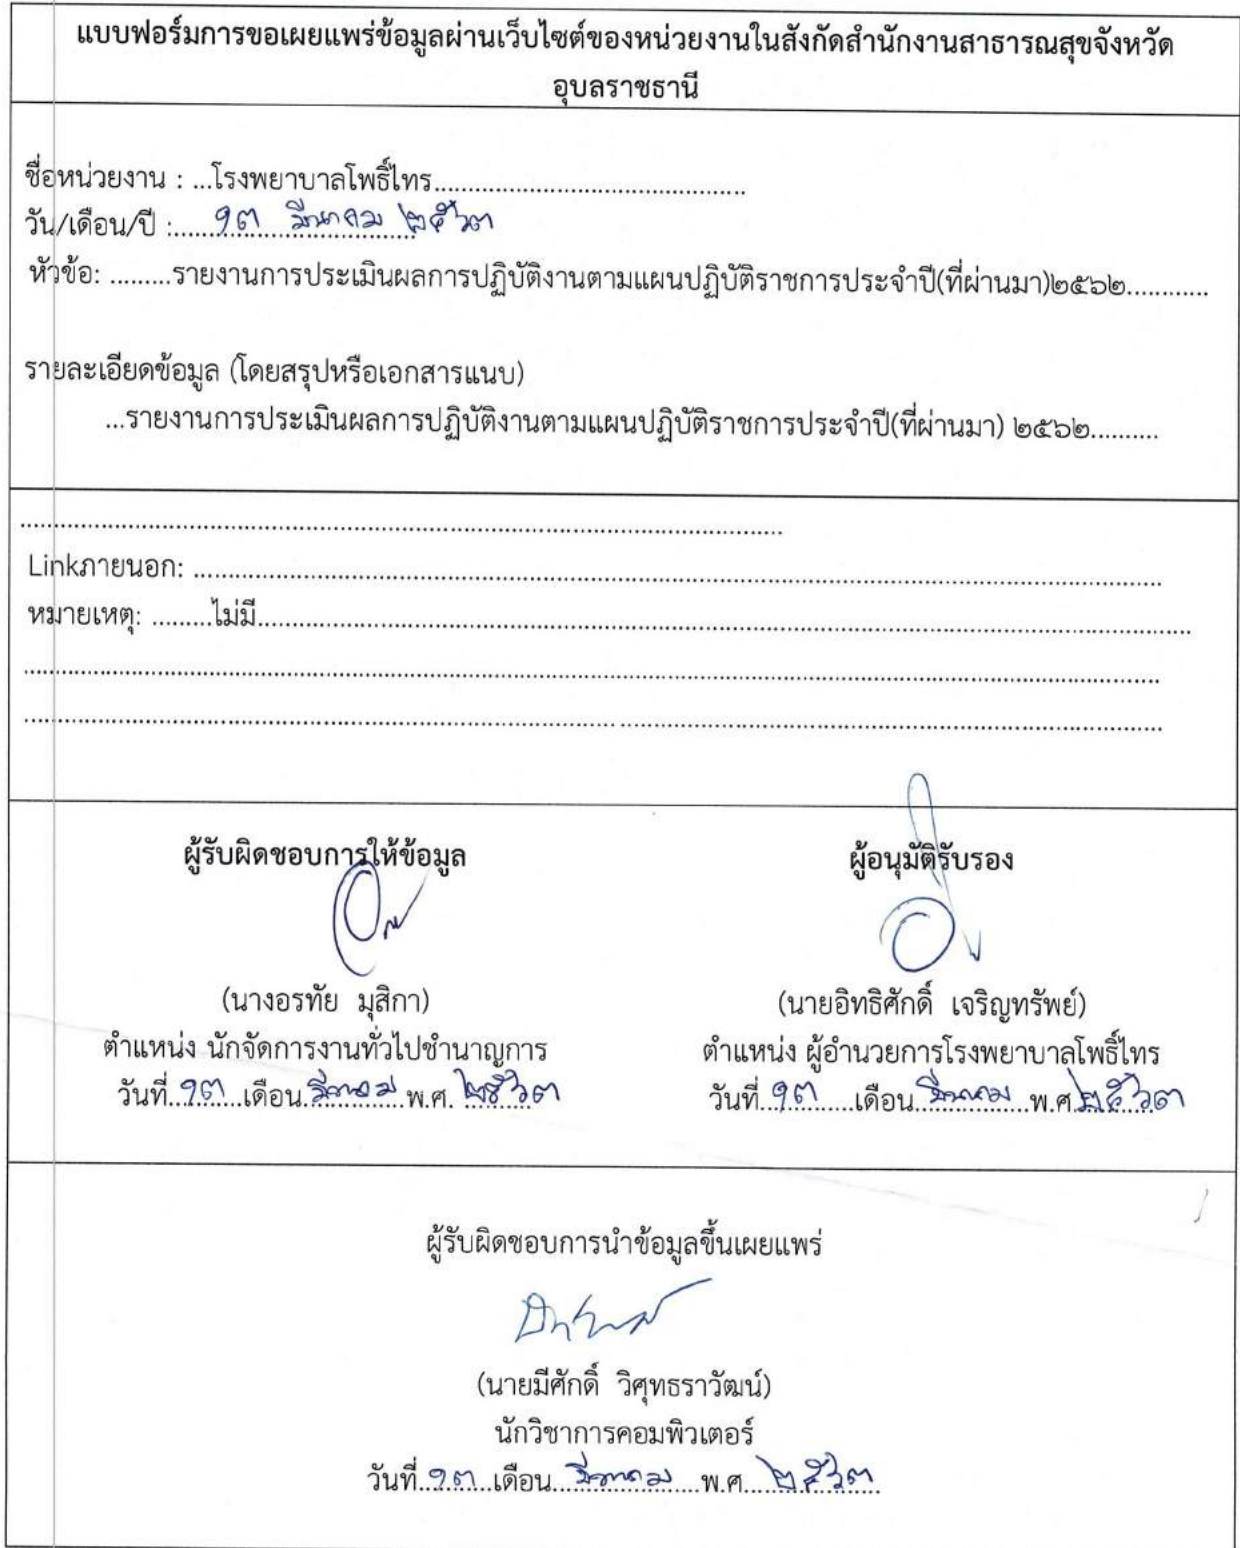 แบบฟอร์มการขอเผยแพร่ข้อมูลผ่านเว็บไซต์ของหน่วยงานในสังกัดสำนักงานสาธารณสุขจังหวัด
อุบลราชธานี
ชื่อหน่วยงาน : ...โรงพยาบาลโพธิ์ไทร..............................................
วัน/เดือน/ปี :.....๑๓ มีนาคม ๒๕๖๓
หัวข้อ: .........รายงานการประเมินผลการปฏิบัติงานตามแผนปฏิบัติราชการประจำปี(ที่ผ่านมา)๒๕๖๒............
รายละเอียดข้อมูล (โดยสรุปหรือเอกสารแนบ)
...รายงานการประเมินผลการปฏิบัติงานตามแผนปฏิบัติราชการประจำปี(ที่ผ่านมา) ๒๕๖๒..........
Linkภายนอก: ....................................................
หมายเหตุ: .........ไม่มี....................................................
ผู้รับผิดชอบการให้ข้อมูล ผู้อนุมัติรับรอง
(นางอรทัย มุสิกา) (นายอิทธิศักดิ์ เจริญทรัพย์)
ตำแหน่ง นักจัดการงานทั่วไปชำนาญการ ตำแหน่ง ผู้อำนวยการโรงพยาบาลโพธิ์ไทร
วันที่..๑๓....เดือน.มีนาคม..พ.ศ. ๒๕๖๓ วันที่..๑๓.....เดือน..มีนาคม...พ.ศ.๒๕๖๓
ผู้รับผิดชอบการนำข้อมูลขึ้นเผยแพร่
(นายมีศักดิ์ วิศุทธราวัฒน์)
นักวิชาการคอมพิวเตอร์
วันที่..๑๓...เดือน...มีนาคม....พ.ศ....๒๕๖๓